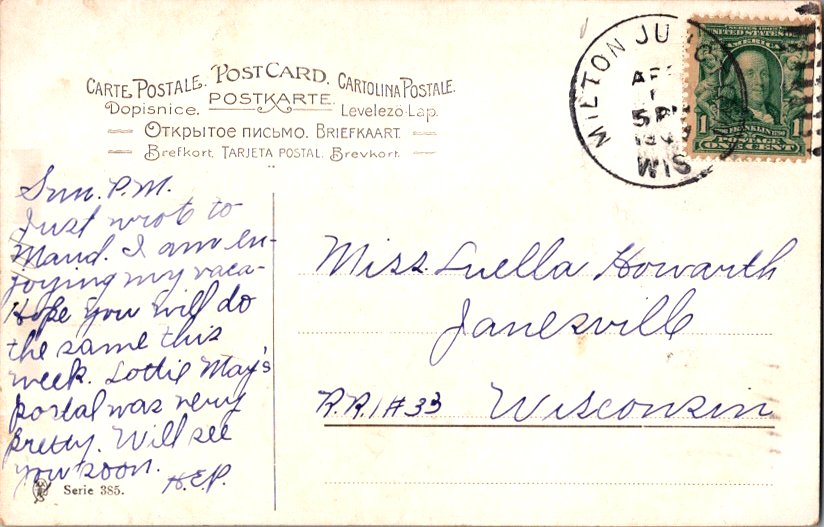 CARTE POSTALE. POST CARD. CARTOLINA POSTALE.
Dopisnice. POSTKARTE. Levelező-Lap.
Открытое письмо. BRIEFKAART.
Brefkort. TARJETA POSTAL. Brevkort.
MILTON JUNC
5 PM
WIS
SERIES 1902
UNITED STATES OF
AMERICA
FRANKLIN
1 1
POSTAGE
ONE CENT
Sun. P.M.
Just wrote to
Maud. I am en-
joying my vaca-
Hope you will do
the same this
week. Lottie May's
postal was very
pretty. Will see
you soon.
H.E.P.
Serie 385.
Miss Luella Howarth
Janesville
R.R. 1 # 33 Wisconsin